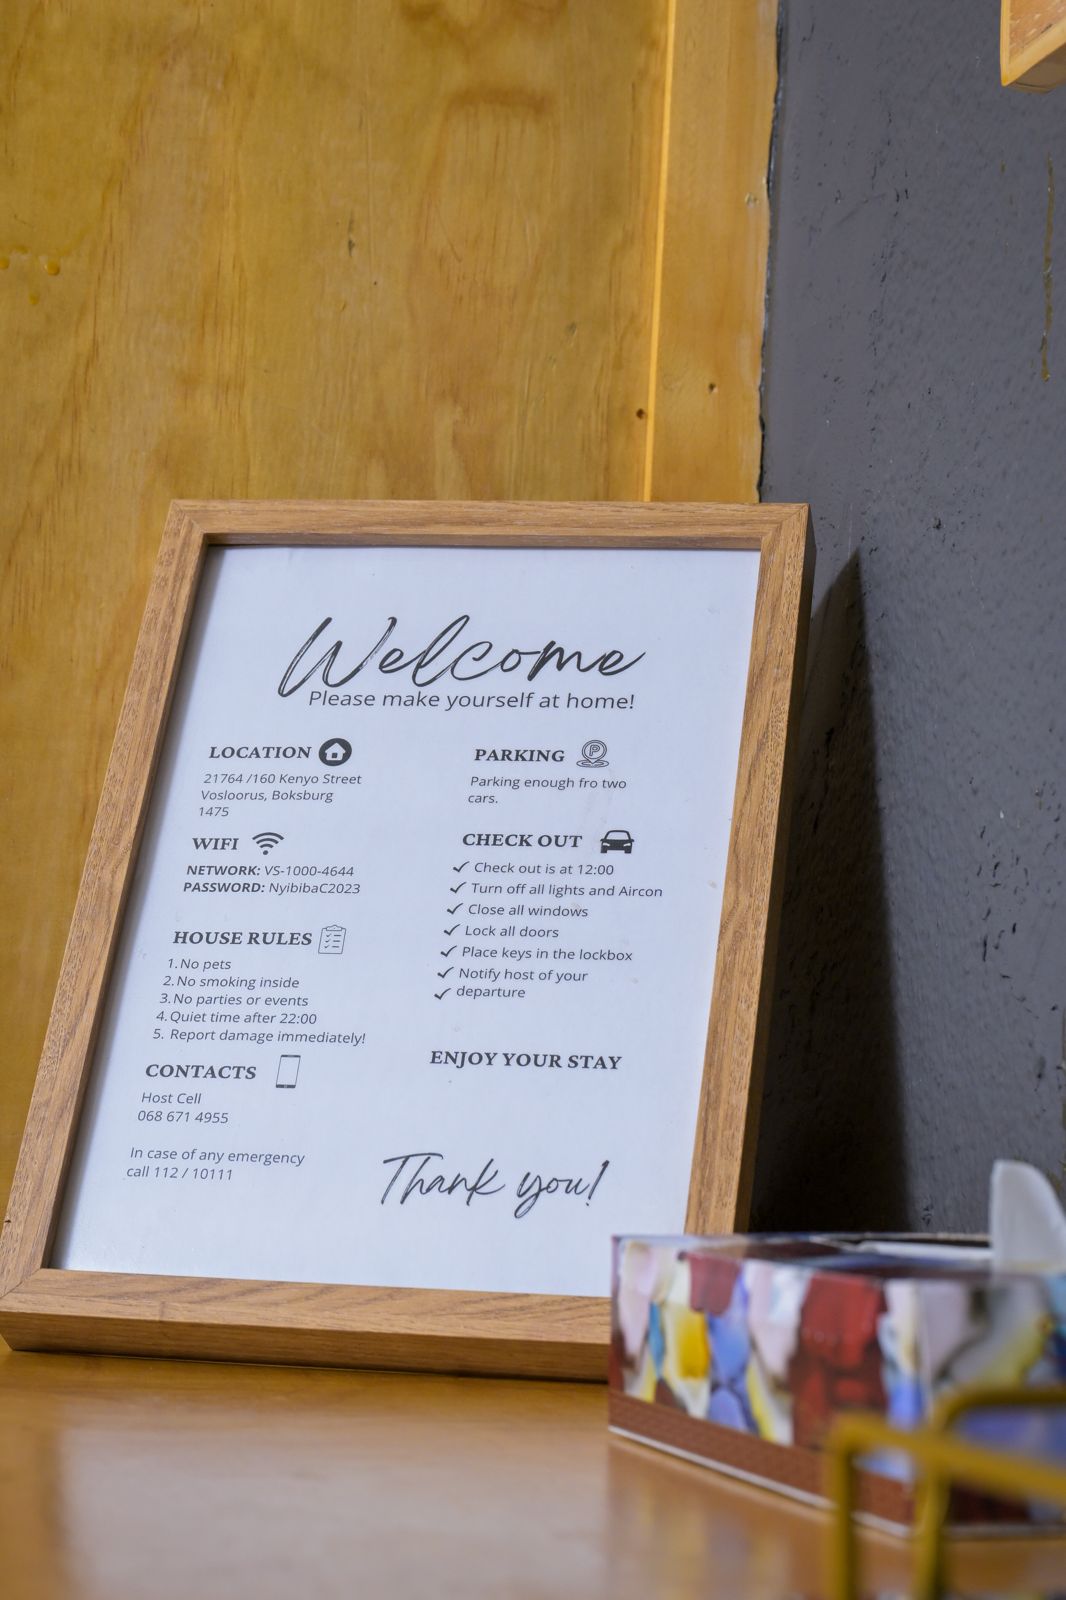 Welcome
Please make yourself at home!
LOCATION
21764 /160 Kenyo Street
Vosloorus, Boksburg
1475
WIFI
NETWORK: VS-1000-4644
PASSWORD: NyibibaC2023
HOUSE RULES
1. No pets
2. No smoking inside
3. No parties or events
4. Quiet time after 22:00
5. Report damage immediately!
CONTACTS
Host Cell
068 671 4955
In case of any emergency
call 112 / 10111
PARKING
P
Parking enough fro two
cars.
CHECK OUT
✓ Check out is at 12:00
✓ Turn off all lights and Aircon
✓ Close all windows
✓ Lock all doors
✓ Place keys in the lockbox
✓ Notify host of your
✓ departure
ENJOY YOUR STAY
Thank you!